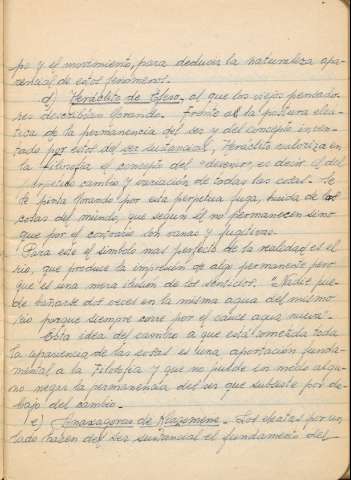 po y el movimiento, para deducir la naturaleza apa-
rencial de estos fenómenos.
d) Heráclito de Efeso.- al que los viejos pensado-
res describían llorando. Frente a la postura eleá-
tica de la permanencia del ser y del concepto inven-
tado por estos del ser sustancial, Heráclito entroniza en
la Filosofía el concepto del "devenir", es decir el del
perpetuo cambio y variación de todas las cosas. Se
le pinta llorando por esta perpetua fuga, huida de las
cosas del mundo, que según él no permanecen sino
que por el contrario son vanas y fugitivas.
Para este el símbolo mas perfecto de la realidad es el
río, que produce la impresión de algo permanente pero
que es una mera ilusión de los sentidos. "Nadie pue-
de bañarse dos veces en la misma agua del mismo
río porque siempre corre por el cauce agua nueva".
Esta idea del cambio a que está sometida toda
la apariencia de las cosas es una aportación funda-
mental a la Filosofía y que no puede en modo algu-
no negar la permanencia del ser que subsiste por de-
bajo del cambio.
e) Anaxagoras de Klazomene.- Los eleatas por un
lado hacen del ser sustancial el fundamento del